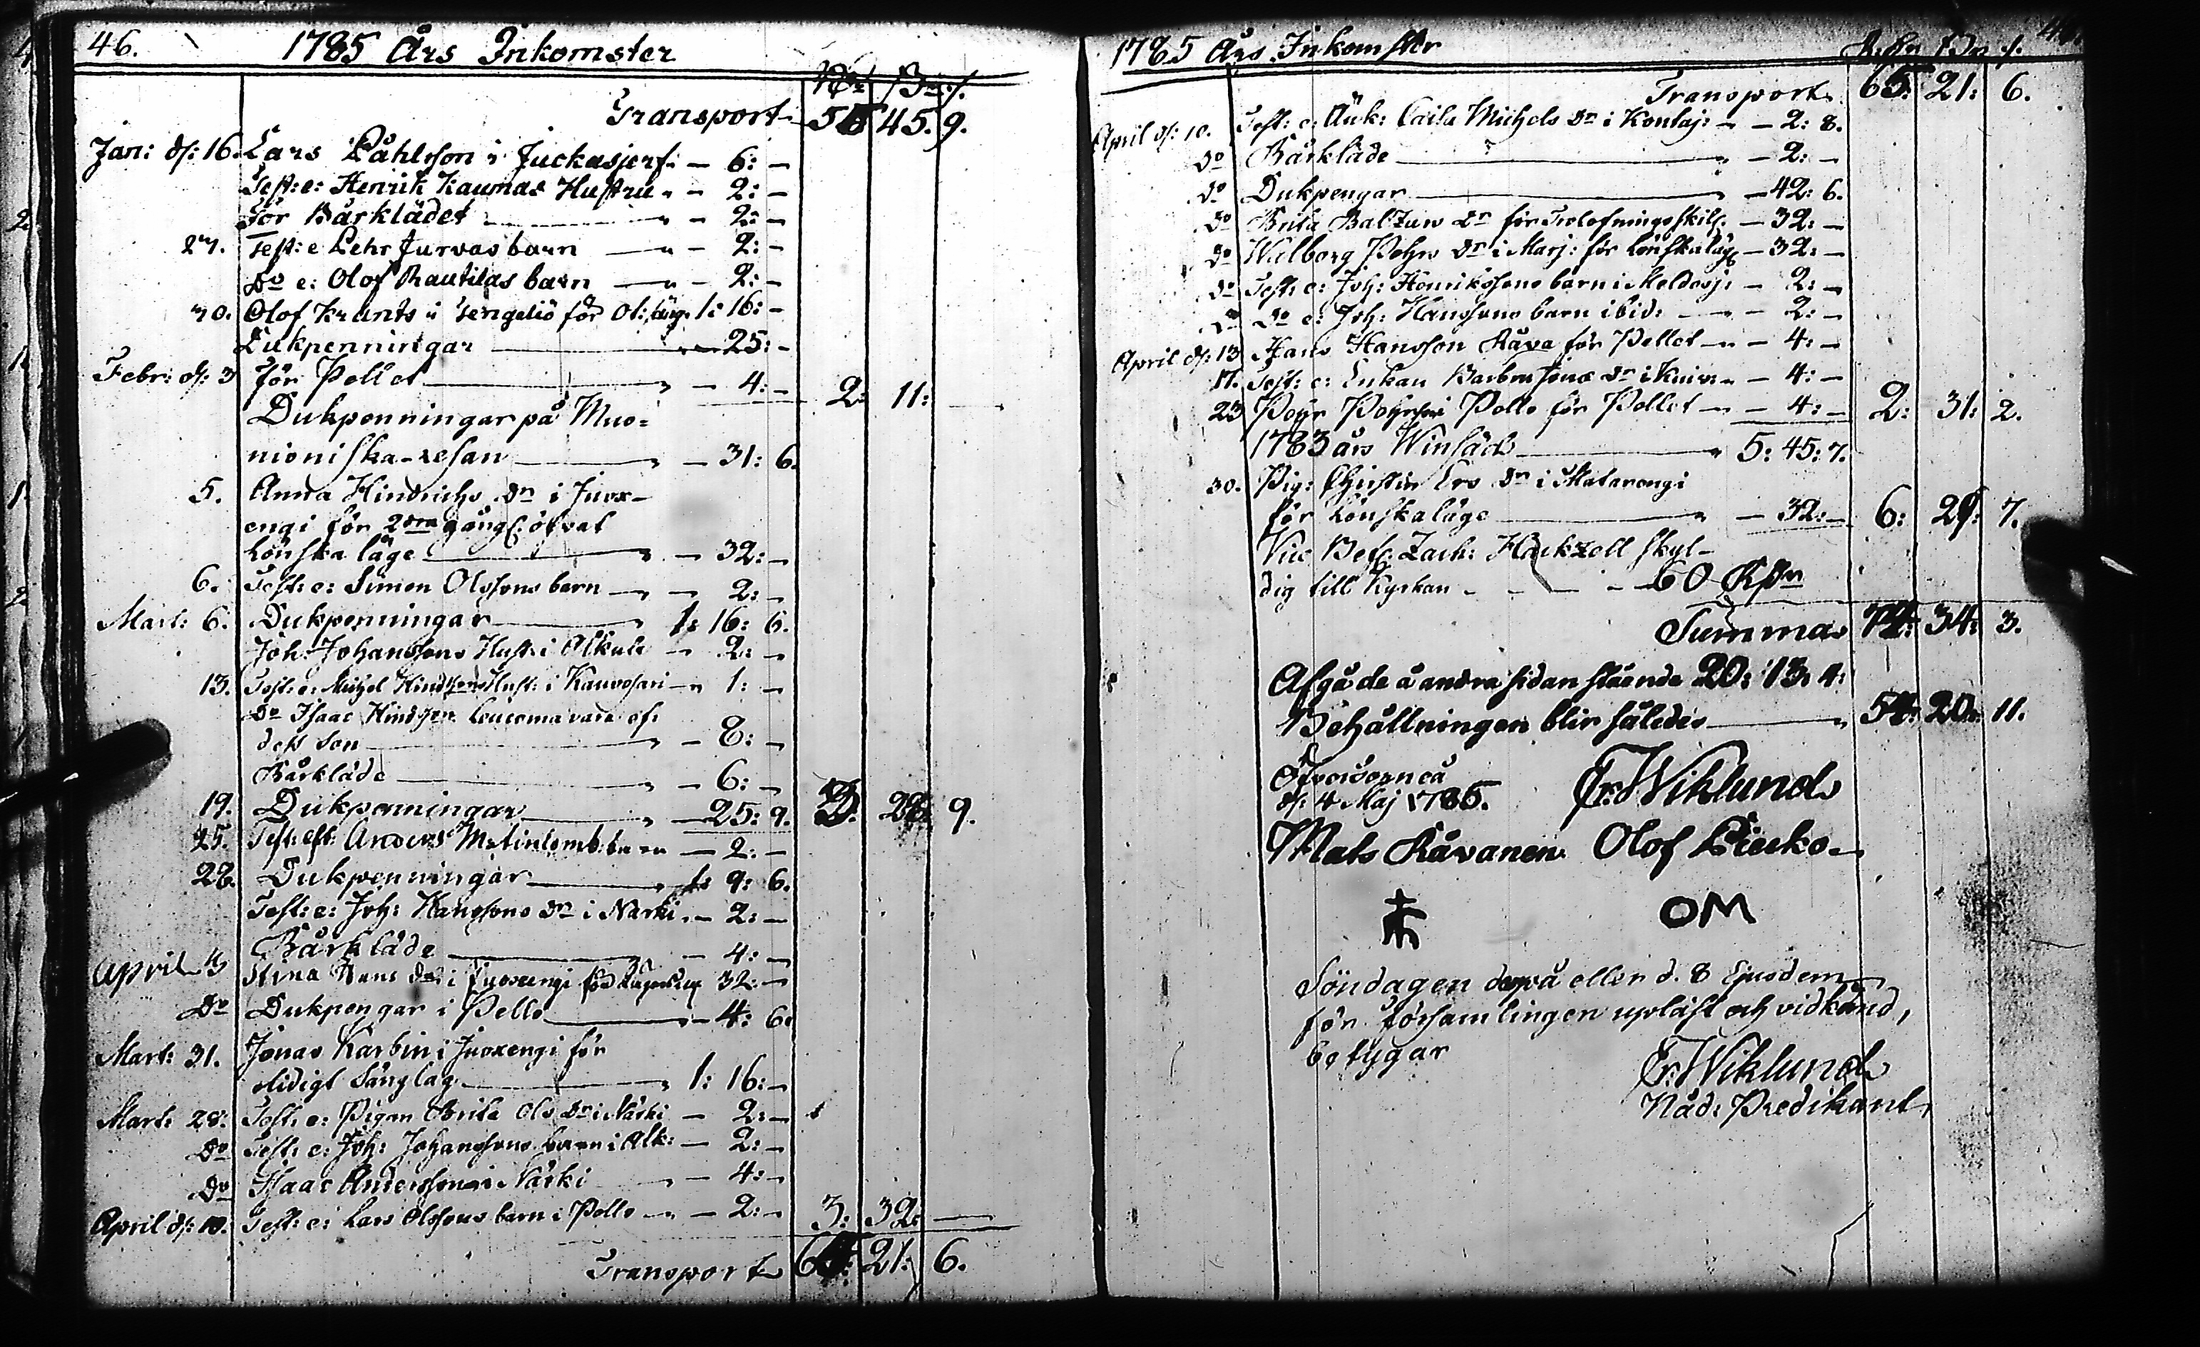 46. 1785 Års Inkomster
Rdr ßr: /.
Transport 45. 9.
Jan: d: 16. Lars Påhlsson i Juckasjerf: — 6: —
Test: e: Henrik Kaumas Hustru — 2: —
för Bårklädet — 2: —
27. Test: e Pehr Jurvas barn — 2: —
Do e: Olof Rautilas barn — 2: —
30. Olof Krants i Tengeliö för 1: 16: —
Dukpenningar — 25: —
Febr: d: 3 för Pellet — 4: — 2: 11: —
Dukpenningar på Muo-
nioniska-resan — 31: 6.
5. Anna Hindrichs Dr i Juox-
engi för 2dra gång
Lönskaläge — 32: —
6. Test: e: Simon Olssons barn — 2: —
Mart: 6. Dukpenningar 1: 16: 6.
Joh: Johanssons Hust: i Alkula — 2: —
13. Test: e: Michel Hust: i Kauvosari — 1: —
Do Isaac
dess son — 8: —
Bårkläde — 6: —
19. Dukpenningar — 25: 9. 9.
25. Test: eft: Anders barn — 2: —
28. Dukpenningar 1: 9: 6.
Test: e: Joh: Hanssons Dr i Narki — 2: —
Bårkläde — 4: —
April 3 Stina Hans Dr i Juoxengi för 32: —
Do Dukpengar i Pello — 4: 6.
Mart: 31. Jonas Karbin i Juoxengi för
otidigt Sänglag 1: 16: —
Mart: 28: Test: e: Pigan Brita Ols Dr i Närki — 2: —
Do Test: e: Joh: Johanssons barn i Alk: — 2: —
Do Isaac Andersson i Närki — 4: —
April d: 10. Test: e: Lars Olssons barn i Pello — 2: — 3: 32: —
Transport 65: 21: 6.
1785 Års Inkomster
Transport 65: 21: 6.
April d: 10. Test: e: Änk: Carin Michels Dr i — 2: 8.
Do Bårkläde — 2: —
Do Dukpengar — 42: 6.
Do Brita Balzars Dr för — 32: —
Do Walborg Pehrs Dr i Marj: för Lönskaläge — 32: —
Do Test: e: Joh: Henrikssons barn i Meldosj: — 2: —
Do Do e: Joh: Hanssons barn ibid: — 2: —
April d: 13 Hans Hansson Råva för Pellet — 4: —
17. Test: e: — 4: —
23 Pehr Pehrsson Pello för Pellet — 4: — 2: 31: 2.
1783 års Winsäd 5: 45: 7.
30. Pig: Christin Ers Dr i Matarengi
för Lönskaläge — 32: — 6: 29: 7.
Vice Zach: Hackzell skyl-
dig till Kyrkan — 60 Rdr
Summa 74: 34: 3.
Afgå de å andra sidan stående 20: 13: 4:
Behållningen blir således 54: 20: 11.
Öfvertorneå
d: 4 Maj 1785. Er: Wiklund
Mats Råvanen Olof Piecko
OM
Söndagen derpå eller d. 8 Ejusdem
för församlingen upläst och vidkänd,
betygar
Er: Wiklund
Nåd: Predikant